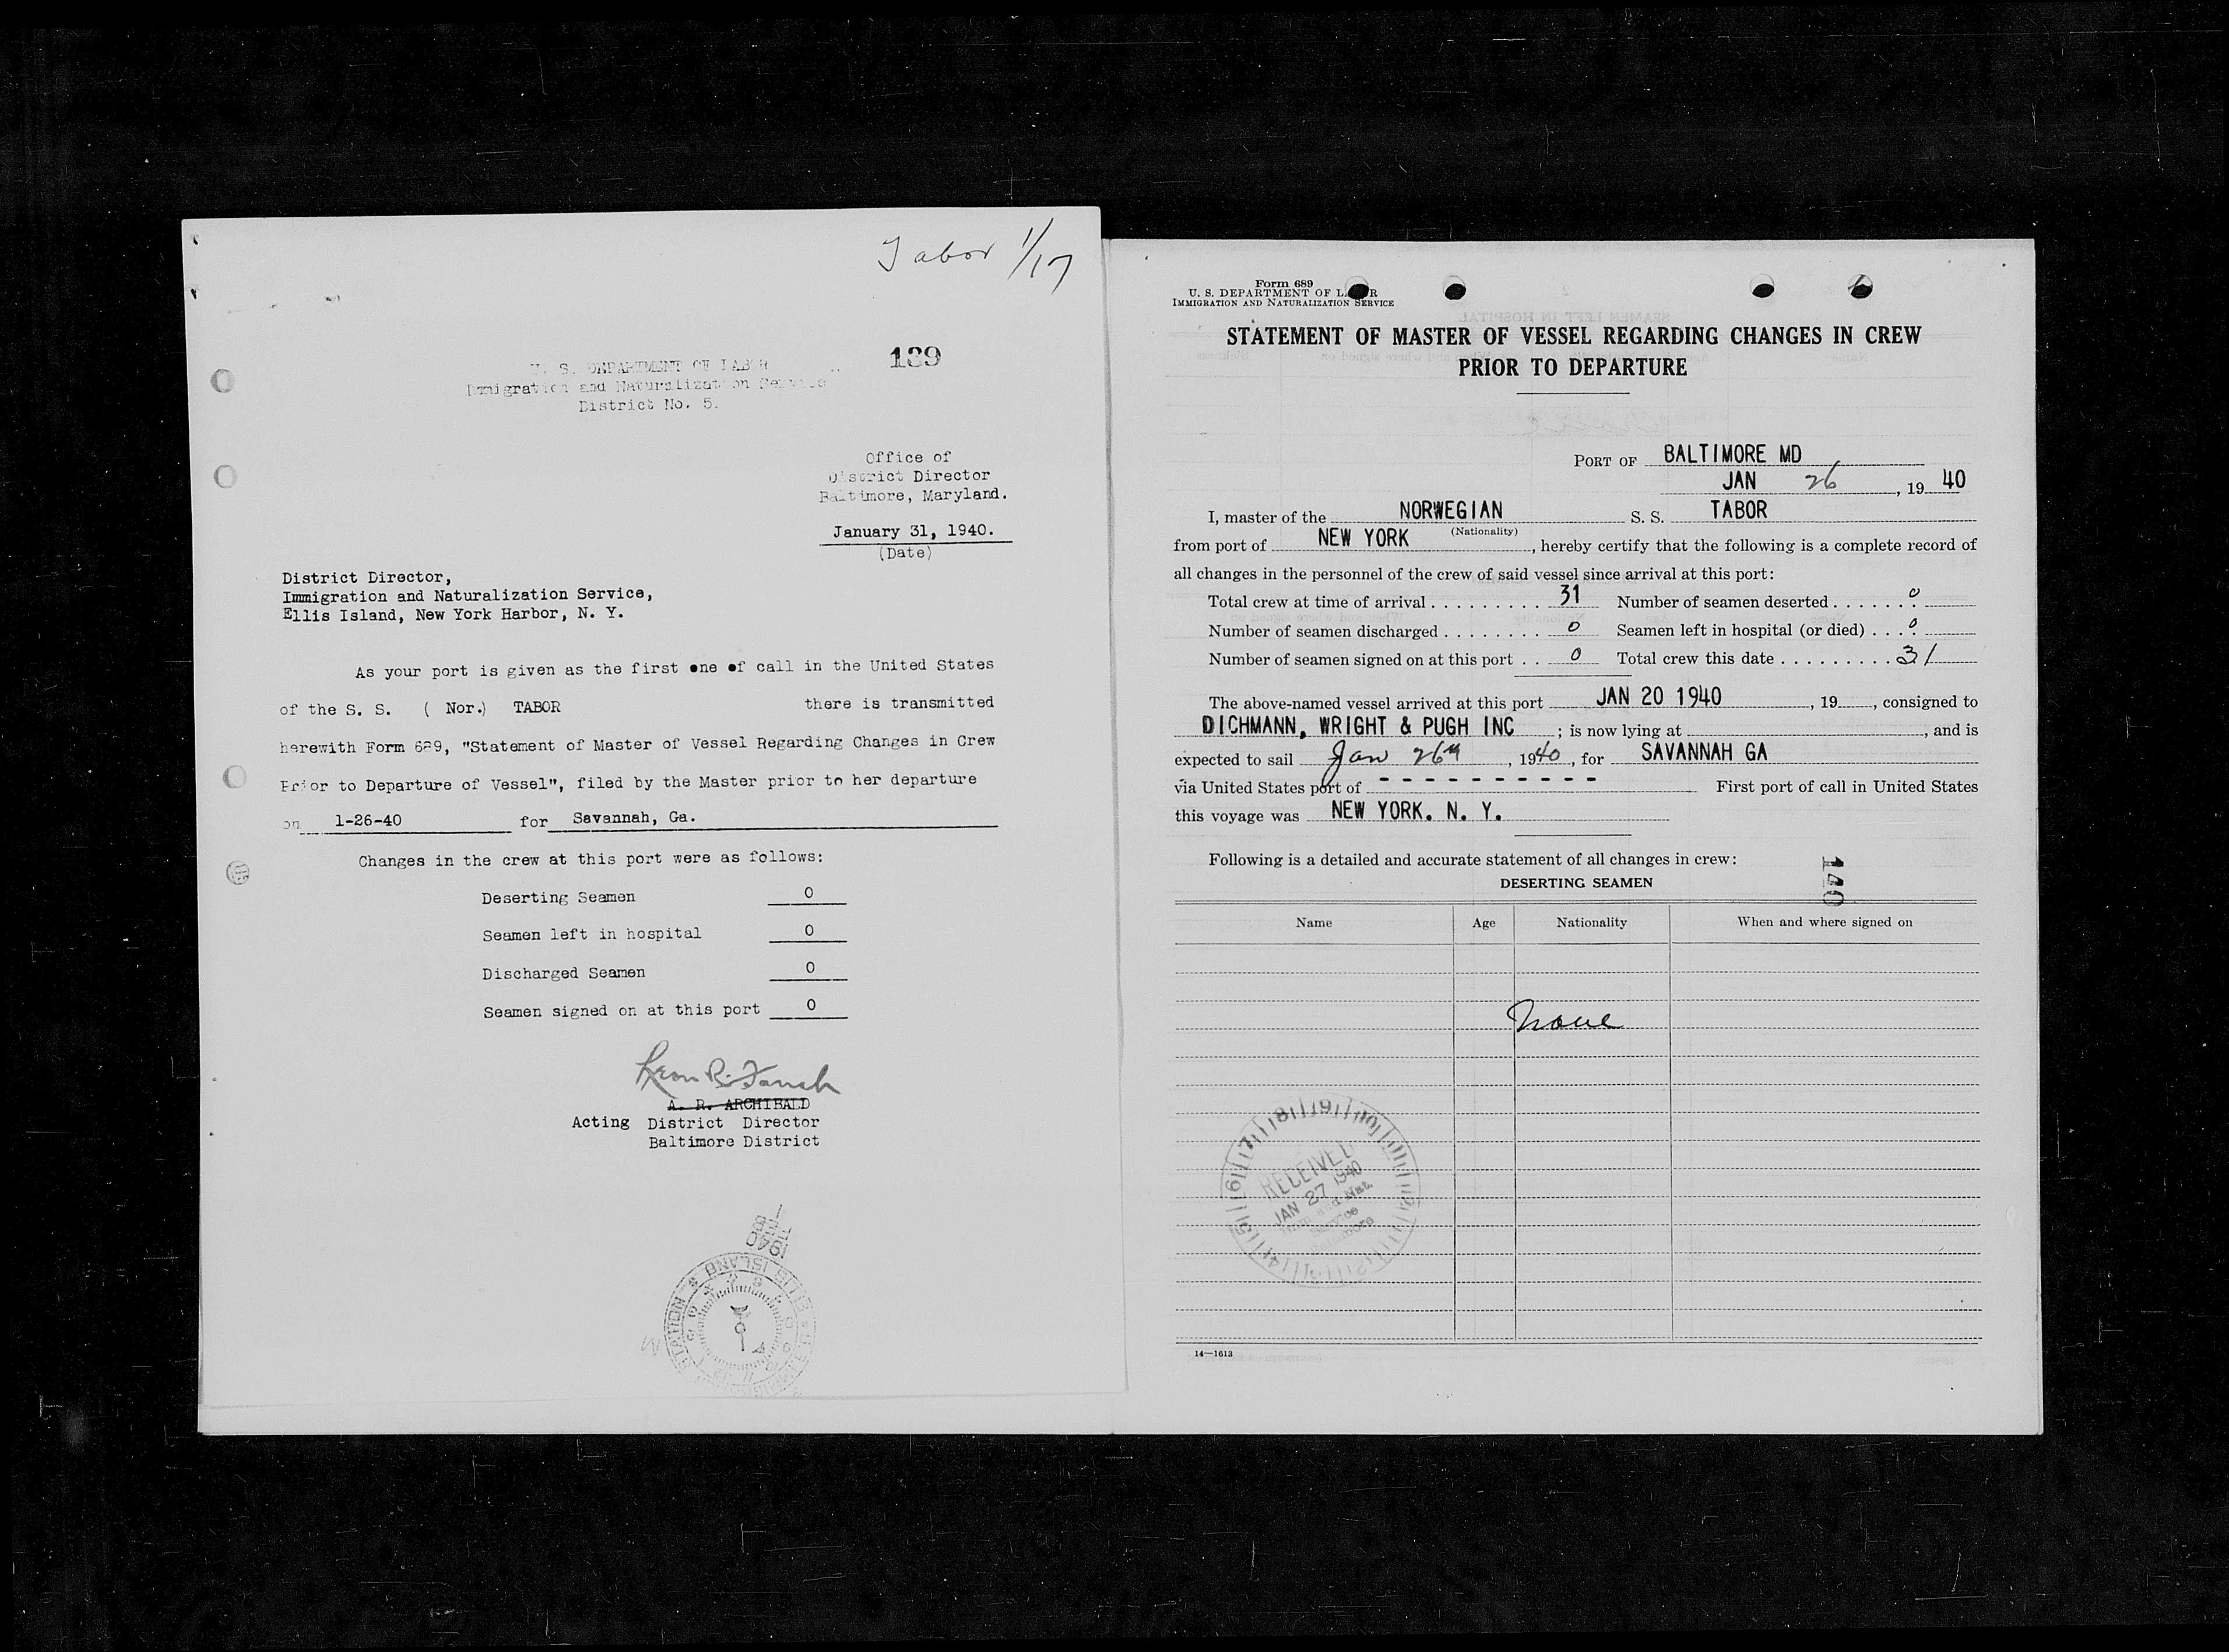 Tabor 1/17
139
U. S. DEPARTMENT OF LABOR
Immigration and Naturalization Service
District No. 5.
Office of
District Director
Baltimore, Maryland.
January 31, 1940.
(Date)
District Director,
Immigration and Naturalization Service,
Ellis Island, New York Harbor, N. Y.
As your port is given as the first one of call in the United States
of the S. S. ( Nor.) TABOR there is transmitted
herewith Form 689, "Statement of Master of Vessel Regarding Changes in Crew
Prior to Departure of Vessel", filed by the Master prior to her departure
on 1-26-40 for Savannah, Ga.
Changes in the crew at this port were as follows:
Deserting Seamen 0
Seamen left in hospital 0
Discharged Seamen 0
Seamen signed on at this port 0
A. R. ARCHIBALD
Acting District Director
Baltimore District
1940
ELLIS ISLAND
STATION
Form 689
U. S. DEPARTMENT OF LABOR
IMMIGRATION AND NATURALIZATION SERVICE
STATEMENT OF MASTER OF VESSEL REGARDING CHANGES IN CREW
PRIOR TO DEPARTURE
PORT OF BALTIMORE MD
JAN 26, 19 40
I, master of the NORWEGIAN S. S. TABOR
(Nationality)
from port of NEW YORK, hereby certify that the following is a complete record of
all changes in the personnel of the crew of said vessel since arrival at this port:
Total crew at time of arrival . . . . . . . . . 31 Number of seamen deserted . . . . . . . 0
Number of seamen discharged . . . . . . . . 0 Seamen left in hospital (or died) . . . . 0
Number of seamen signed on at this port . . 0 Total crew this date . . . . . . . . . 31
The above-named vessel arrived at this port JAN 20 1940, 19, consigned to
DICHMANN, WRIGHT & PUGH INC ; is now lying at , and is
expected to sail Jan 26th, 1940, for SAVANNAH GA
via United States port of - - - - - - - - - - First port of call in United States
this voyage was NEW YORK. N. Y.
Following is a detailed and accurate statement of all changes in crew:
140
DESERTING SEAMEN
Name Age Nationality When and where signed on
None
RECEIVED
JAN 27 1940
Imm and Nat.
Service
Baltimore
14—1613